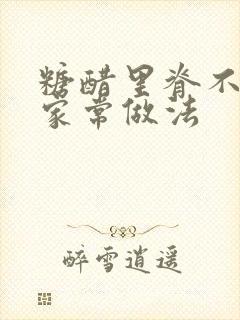 糖醋里脊不
家常做法
醉雪逍遥